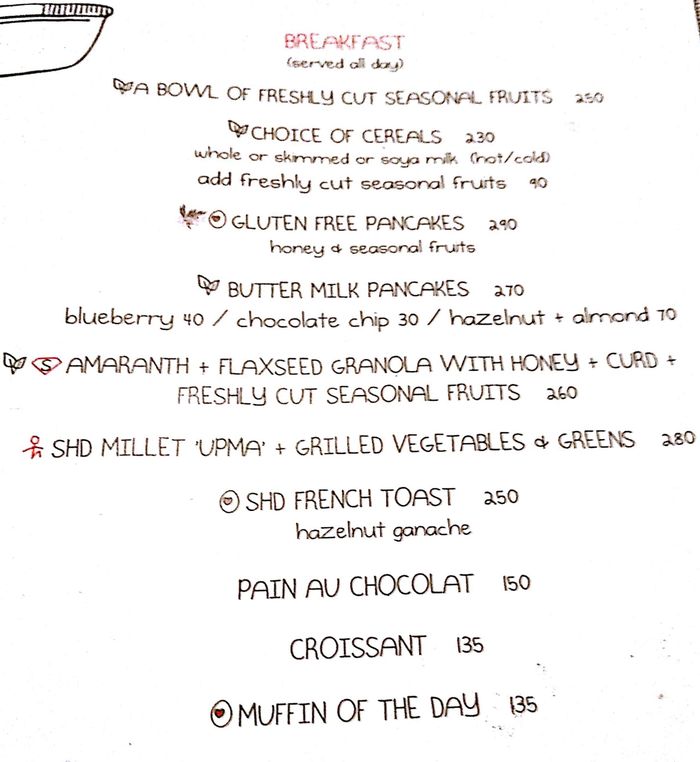 BREAKFAST
(served all day)
A BOWL OF FRESHLY CUT SEASONAL FRUITS 250
CHOICE OF CEREALS 230
whole or skimmed or soya milk (hot/cold)
add freshly cut seasonal fruits 90
GLUTEN FREE PANCAKES 290
honey & seasonal fruits
BUTTER MILK PANCAKES 270
blueberry 40 / chocolate chip 30 / hazelnut + almond 70
S AMARANTH + FLAXSEED GRANOLA WITH HONEY + CURD +
FRESHLY CUT SEASONAL FRUITS 260
SHD MILLET 'UPMA' + GRILLED VEGETABLES & GREENS 280
SHD FRENCH TOAST 250
hazelnut ganache
PAIN AU CHOCOLAT 150
CROISSANT 135
MUFFIN OF THE DAY 135